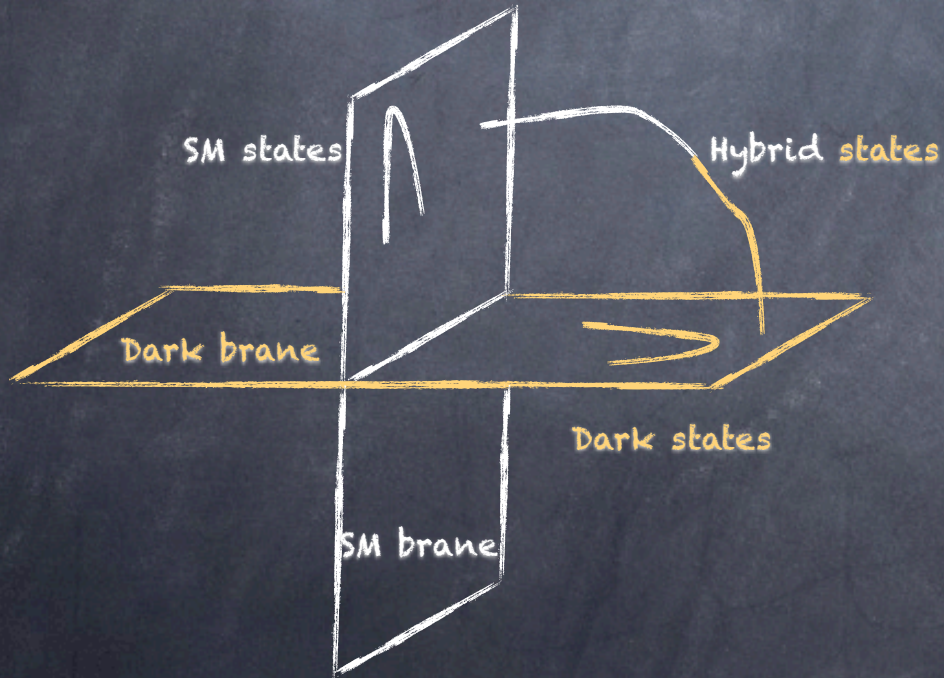 SM states
Hybrid states
Dark brane
Dark states
SM brane